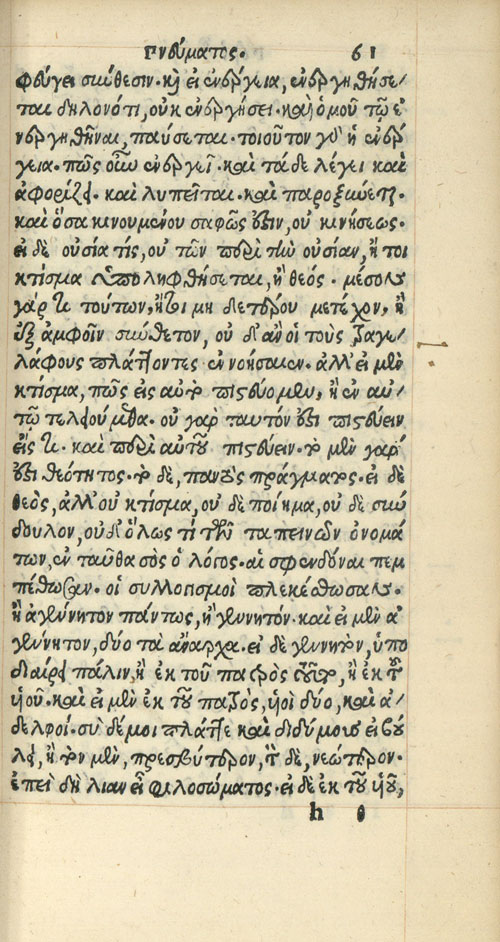 πνεύματος. 61
φεύγει σύνθεσιν. καὶ εἰ ἐνέργεια, ἐνεργηθήσε/
ται δηλονότι, οὐκ ἐνεργήσει. καὶ ὁμοῦ τῷ ἐ
νεργηθῆναι, παύσεται. τοιοῦτον γὰρ ἡ ἐνέρ
γεια. πῶς οὖν ἐνεργεῖ. καὶ τάδε λέγει καὶ
ἀφορίζει. καὶ λυπεῖται. καὶ παροξύνεται.
καὶ ὅσα κινουμένου σαφῶς ἐστιν, οὐ κινήσεως.
εἰ δὲ οὐσία τίς, οὐ τῶν περὶ τὴν οὐσίαν, ἤτοι
κτίσμα ὑποληφθήσεται, ἢ θεός. μέσον
γάρ τι τούτων, ἤτοι μηδετέρου μετέχον, ἢ
ἐξ ἀμφοῖν σύνθετον, οὐδ' ἂν οἱ τοὺς τραγε/
λάφους πλάττοντες ἐννοήσαιεν. ἀλλ' εἰ μὲν
κτίσμα, πῶς εἰς αὐτὸ πιστεύομεν, ἢ ἐν αὐ/
τῷ τελειούμεθα. οὐ γὰρ ταυτόν ἐστι πιστεύειν
εἴς τι. καὶ περὶ αὐτοῦ πιστεύειν. τὸ μὲν γάρ
ἐστι θεότητος. τὸ δὲ, παντὸς πράγματος. εἰ δὲ
θεὸς, ἀλλ' οὐ κτίσμα, οὐδὲ ποίημα, οὐδὲ σύν
δουλον, οὐδ' ὅλως τὶ τῶν ταπεινῶν ὀνομά
των, ἐνταῦθα σὸς ὁ λόγος. αἱ σφενδόναι πεμ
πέσθωσαν. οἱ συλλογισμοὶ πλεκέσθωσαν.
ἢ ἀγέννητον πάντως, ἢ γεννητόν. καὶ εἰ μὲν ἀ
γέννητον, δύο τὰ ἄναρχα. εἰ δὲ γεννητὸν, ὑπο
διαίρει πάλιν, ἢ ἐκ τοῦ πατρὸς τοῦτο, ἢ ἐκ τοῦ
υἱοῦ. καὶ εἰ μὲν ἐκ τοῦ πατρὸς, υἱοὶ δύο, καὶ ἀ/
δελφοί. σὺ δέ μοι πλάττε καὶ διδύμους εἰ βού
λει, ἢ τὸν μὲν, πρεσβύτερον, τὸν δὲ, νεώτερον.
ἐπειδὴ λίαν εἶ φιλοσώματος. εἰ δὲ ἐκ τοῦ υἱοῦ,
h θ